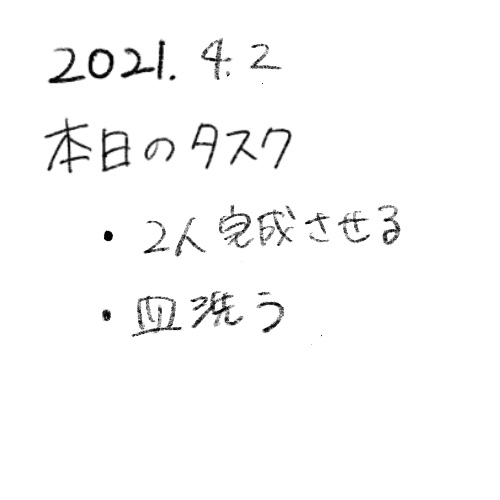 2021.4.2
本日のタスク
・2人完成させる
・皿洗う